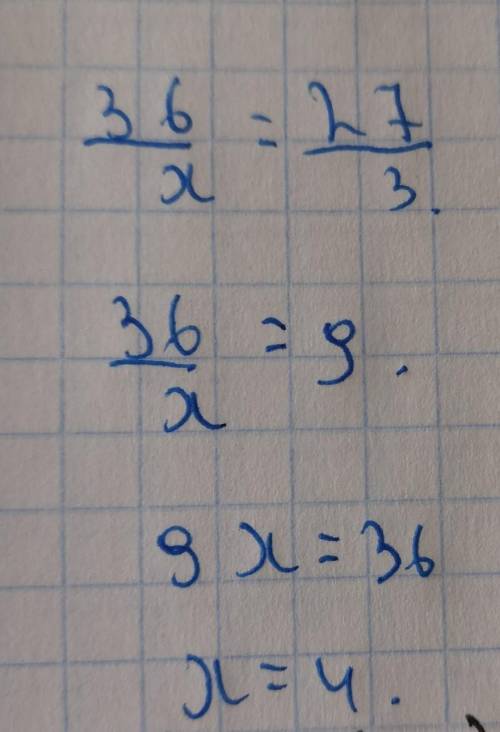 36/x = 27/3.
36/x = 9.
9x = 36
x = 4.